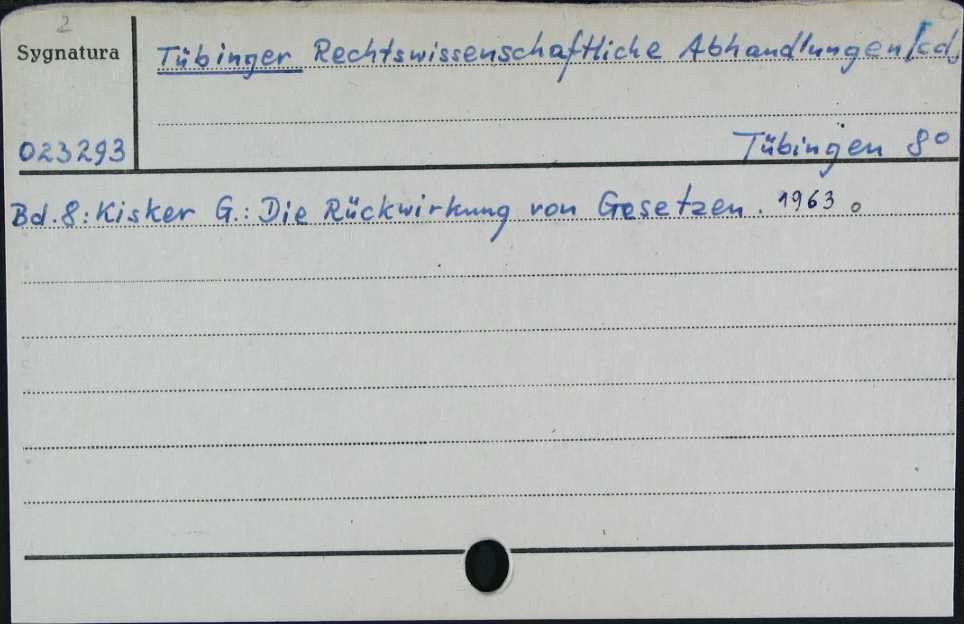 2
Sygnatura
Tübinger Rechtswissenschaftliche Abhandlungen /cd.
023293
Tübingen 8°
Bd. 8: Kisker G.: Die Rückwirkung von Gesetzen. 1963.